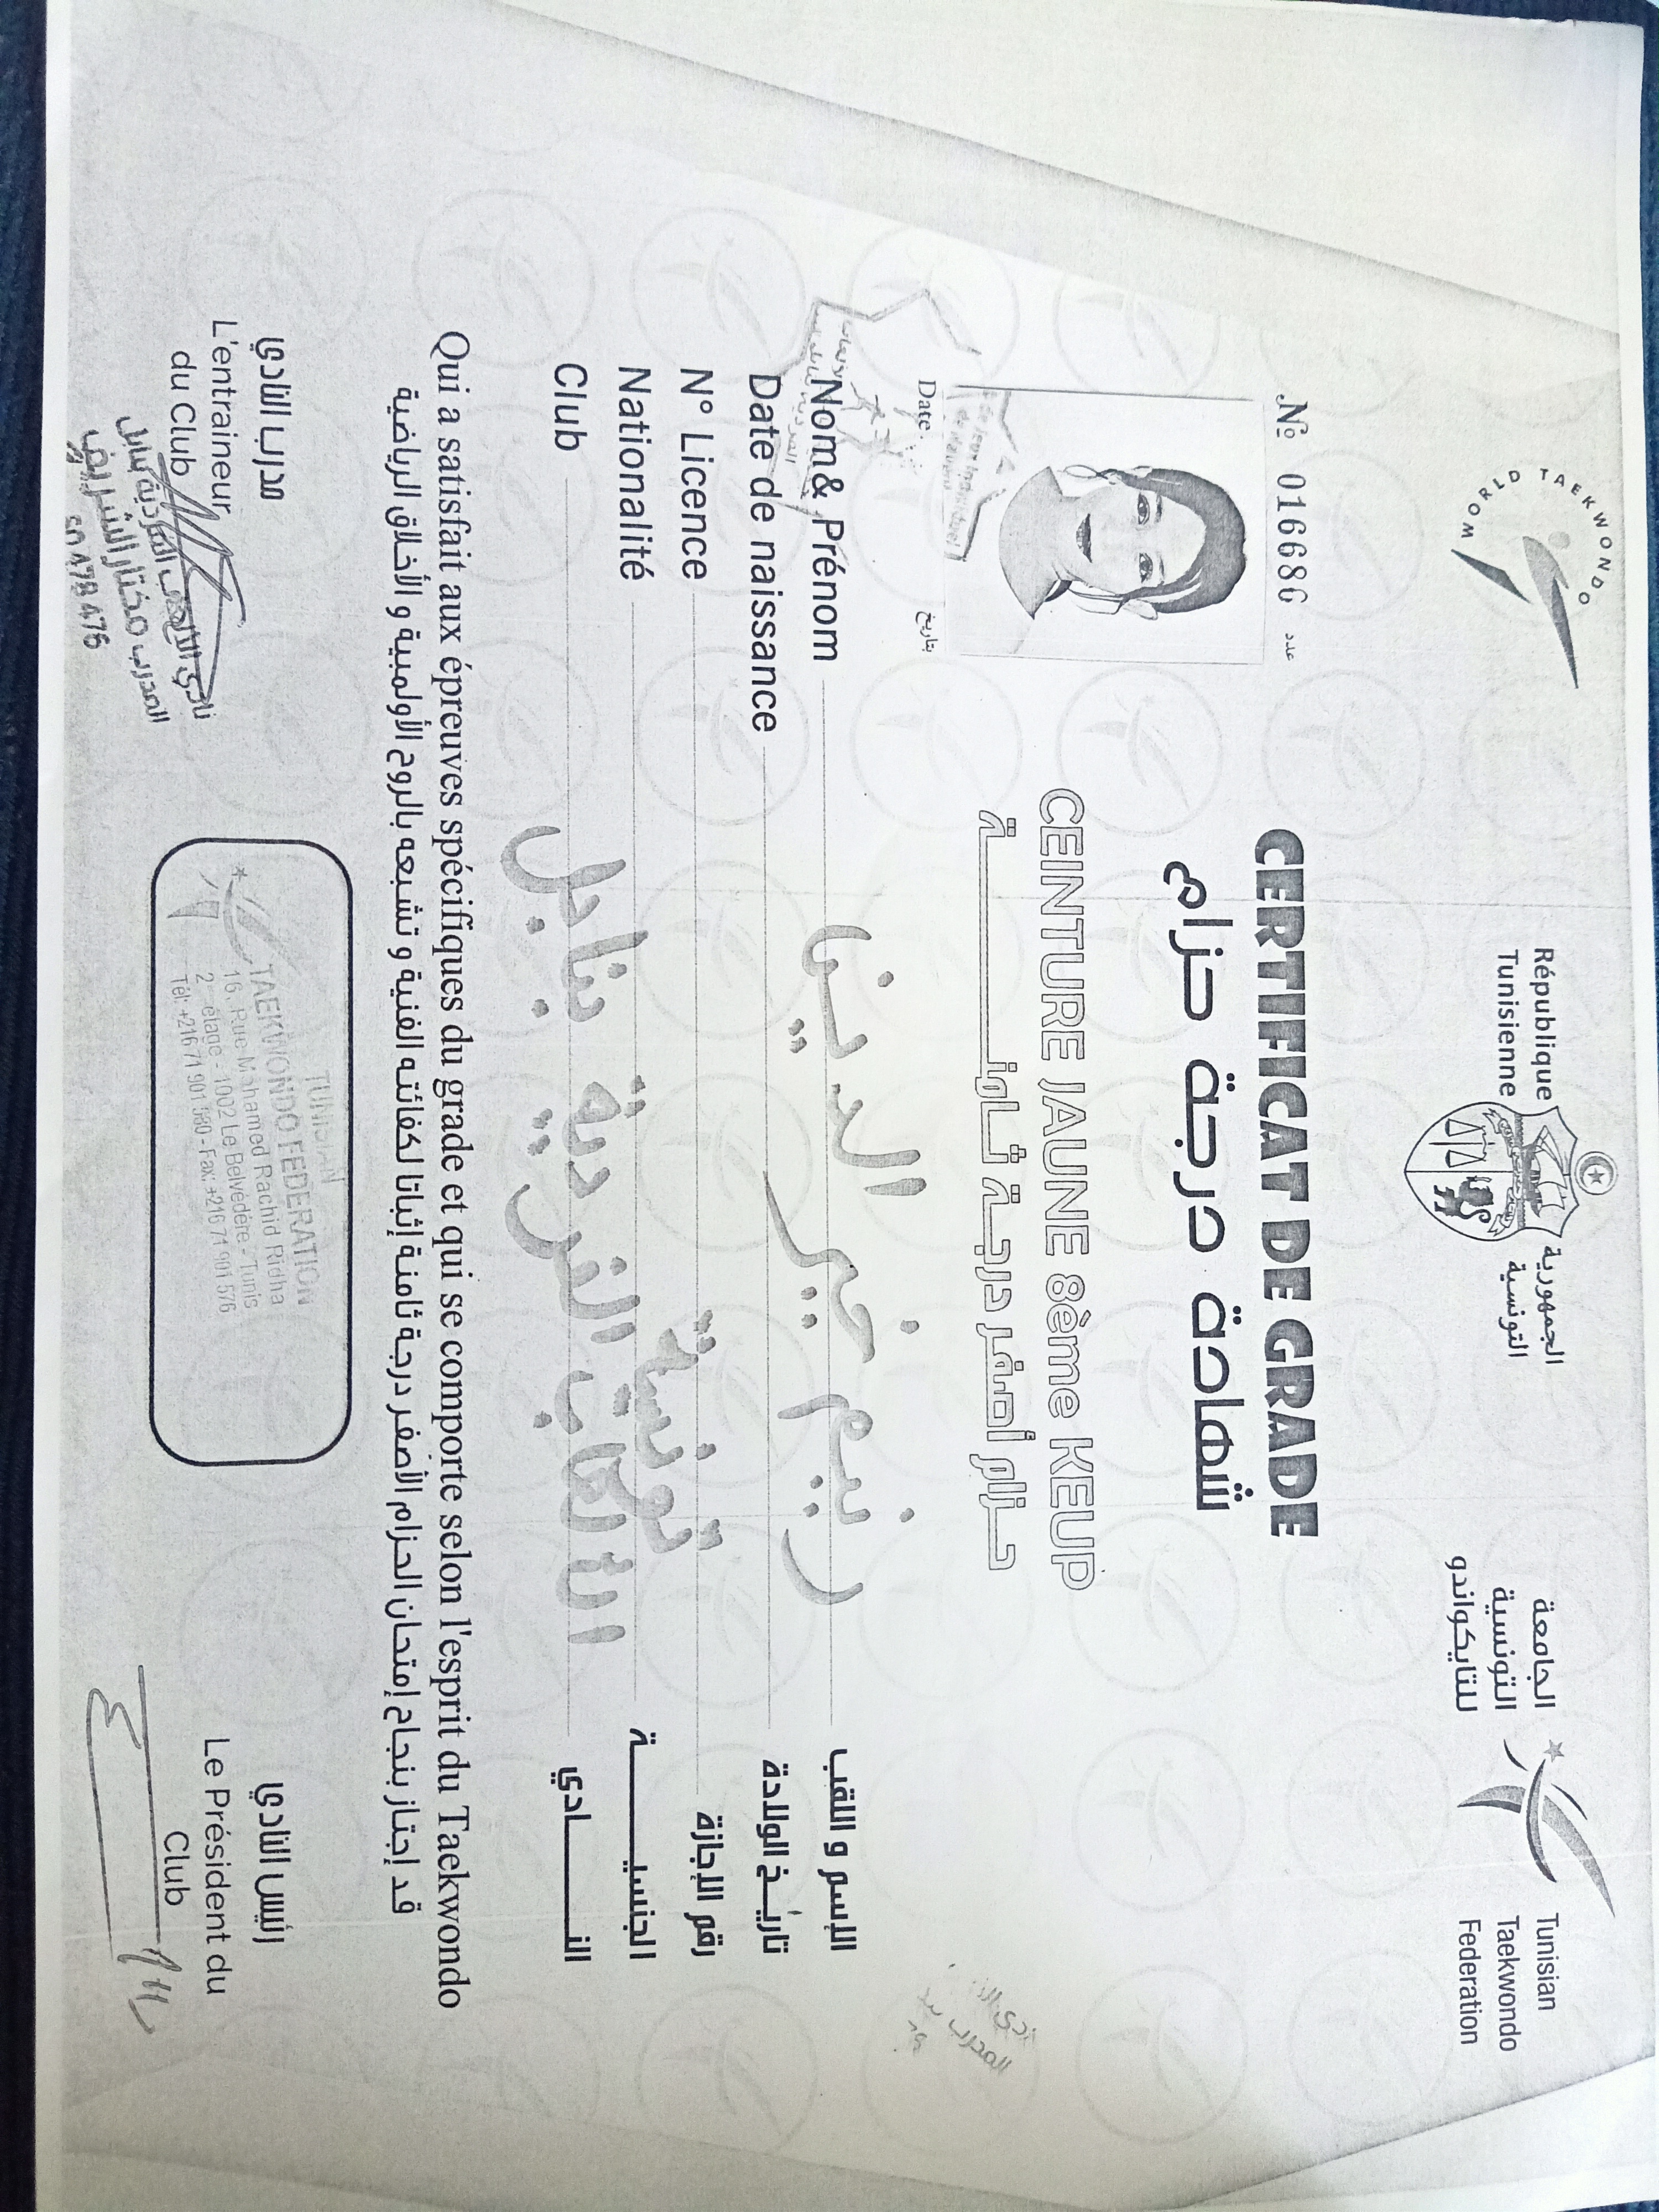 WORLD TAEKWONDO
République
Tunisienne
الجمهورية
التونسية
الجامعة
التونسية
للتايكواندو
Tunisian
Taekwondo
Federation
№ 016686 عدد
CERTIFICAT DE GRADE
شهادة درجة حزام
CEINTURE JAUNE 8ème KEUP
حزام أصفر درجة ثامنة
Date بتاريخ
Nom& Prénom ريم خير الدين الإسم و اللقب
Date de naissance تاريخ الولادة
N° Licence رقم الإجازة
Nationalité تونسية الجنسية
Club الفردية بنابل النادي
Qui a satisfait aux épreuves spécifiques du grade et qui se comporte selon l'esprit du Taekwondo
قد إجتاز بنجاح إمتحان الحزام الأصفر درجة ثامنة إثباتا لكفائته الفنية و تشبعه بالروح الأولمبية و الأخلاق الرياضية
مدرب النادي
L'entraineur
du Club
نادي الألعاب الفردية بنابل
المدرب مختار الشريف
50 478 476
TUNISIAN
TAEKWONDO FEDERATION
16, Rue Mohamed Rachid Ridha
2ème étage - 1002 Le Belvédère - Tunis
Tél: +216 71 901 580 - Fax: +216 71 901 576
رئيس النادي
Le Président du
Club